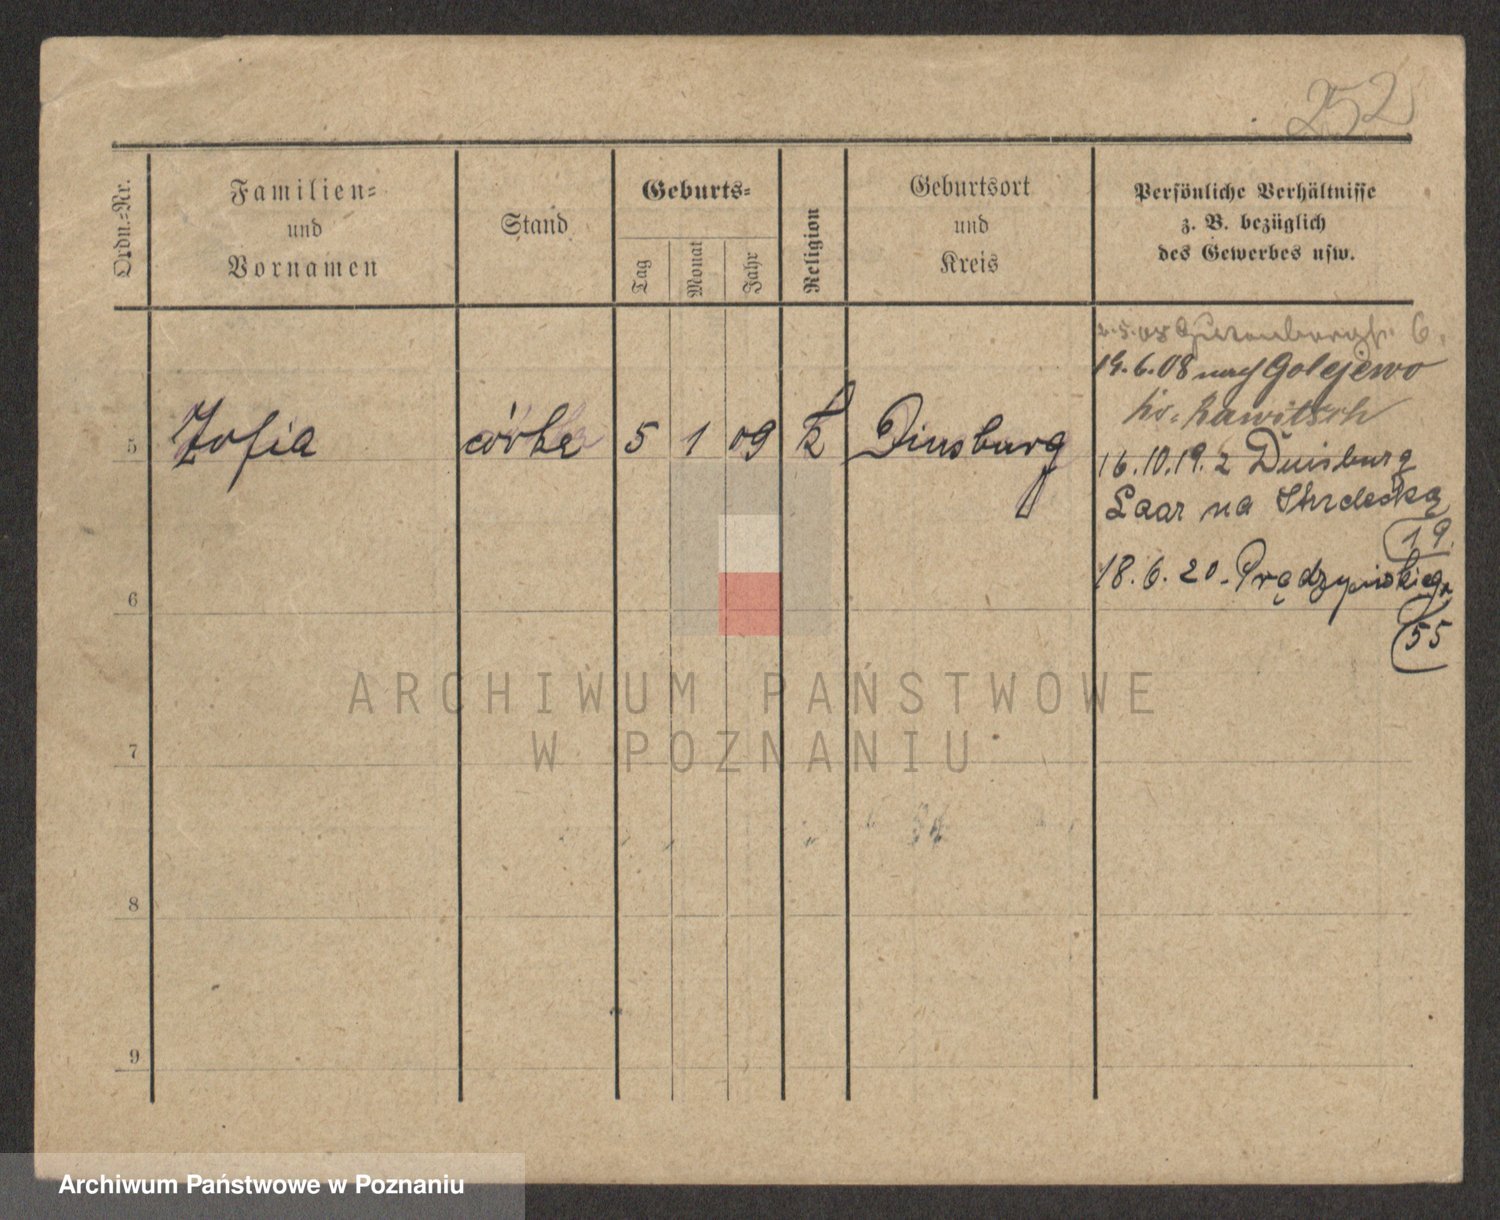 252
Ordn.-Nr.
Familien-
und
Vornamen
Stand
Geburts-
Tag
Monat
Jahr
Religion
Geburtsort
und
Kreis
Persönliche Verhältnisse
z. B. bezüglich
des Gewerbes usw.
Gutenbergstr. 6.
19.6.08 nach Golejewo
Kr. Rawitsch
5 Zofia córka 5 1 09 k Duisburg
16.10.19. z Duisburg
Laar na
19.
18.6.20. Prądzyńskiego
55
6
7
8
9
ARCHIWUM PAŃSTWOWE
W POZNANIU
Archiwum Państwowe w Poznaniu